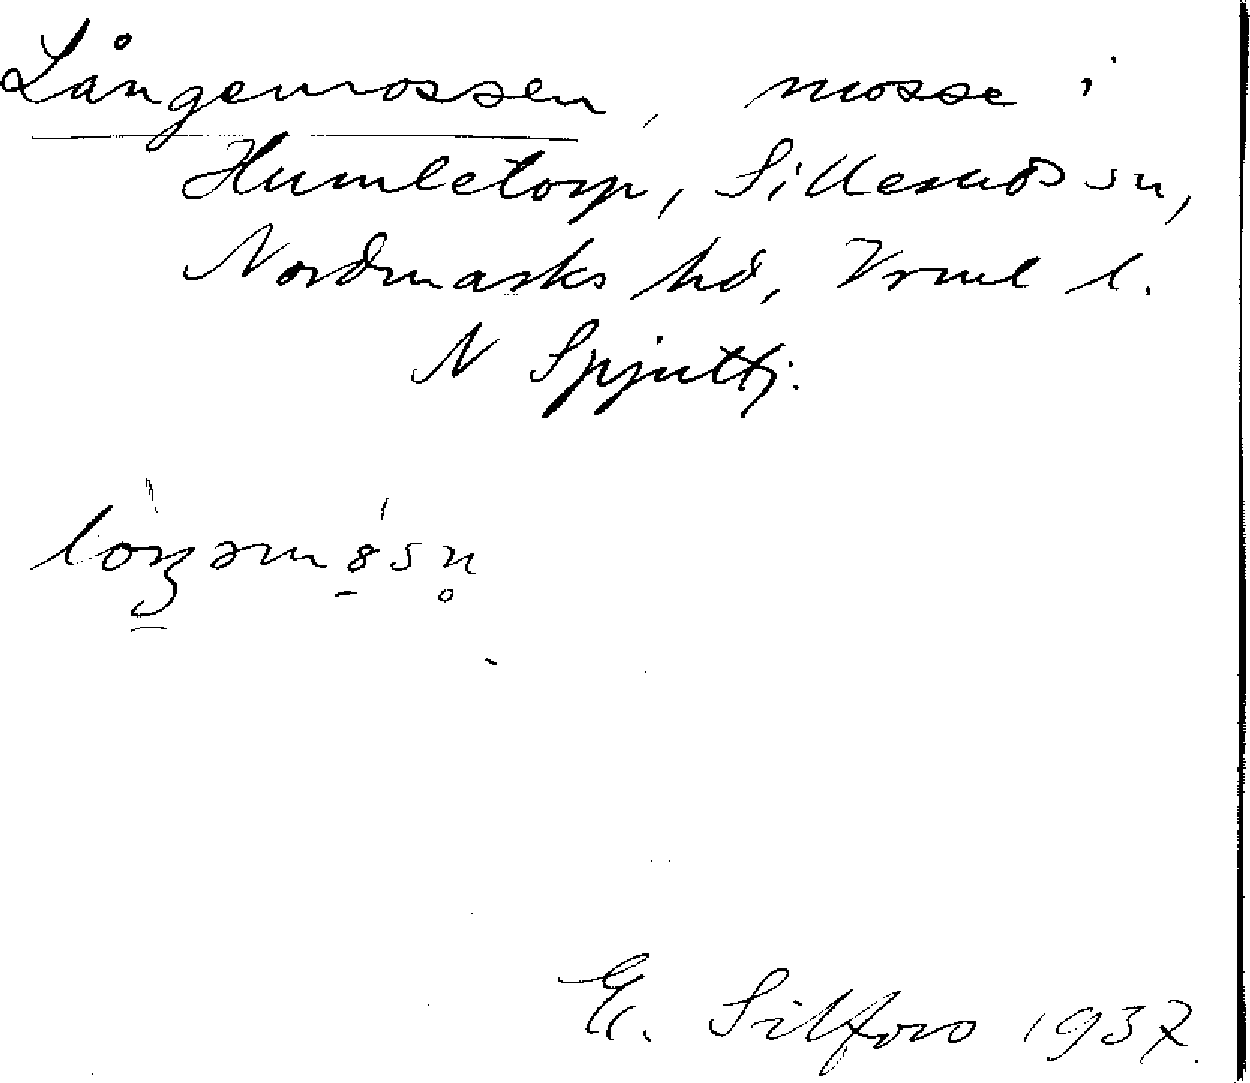 Långemossen, mosse i
Humletorp, Sillerud sn,
Nordmarks hd, Vrml l.
N Spjuttj.
E. Silfors 1937.